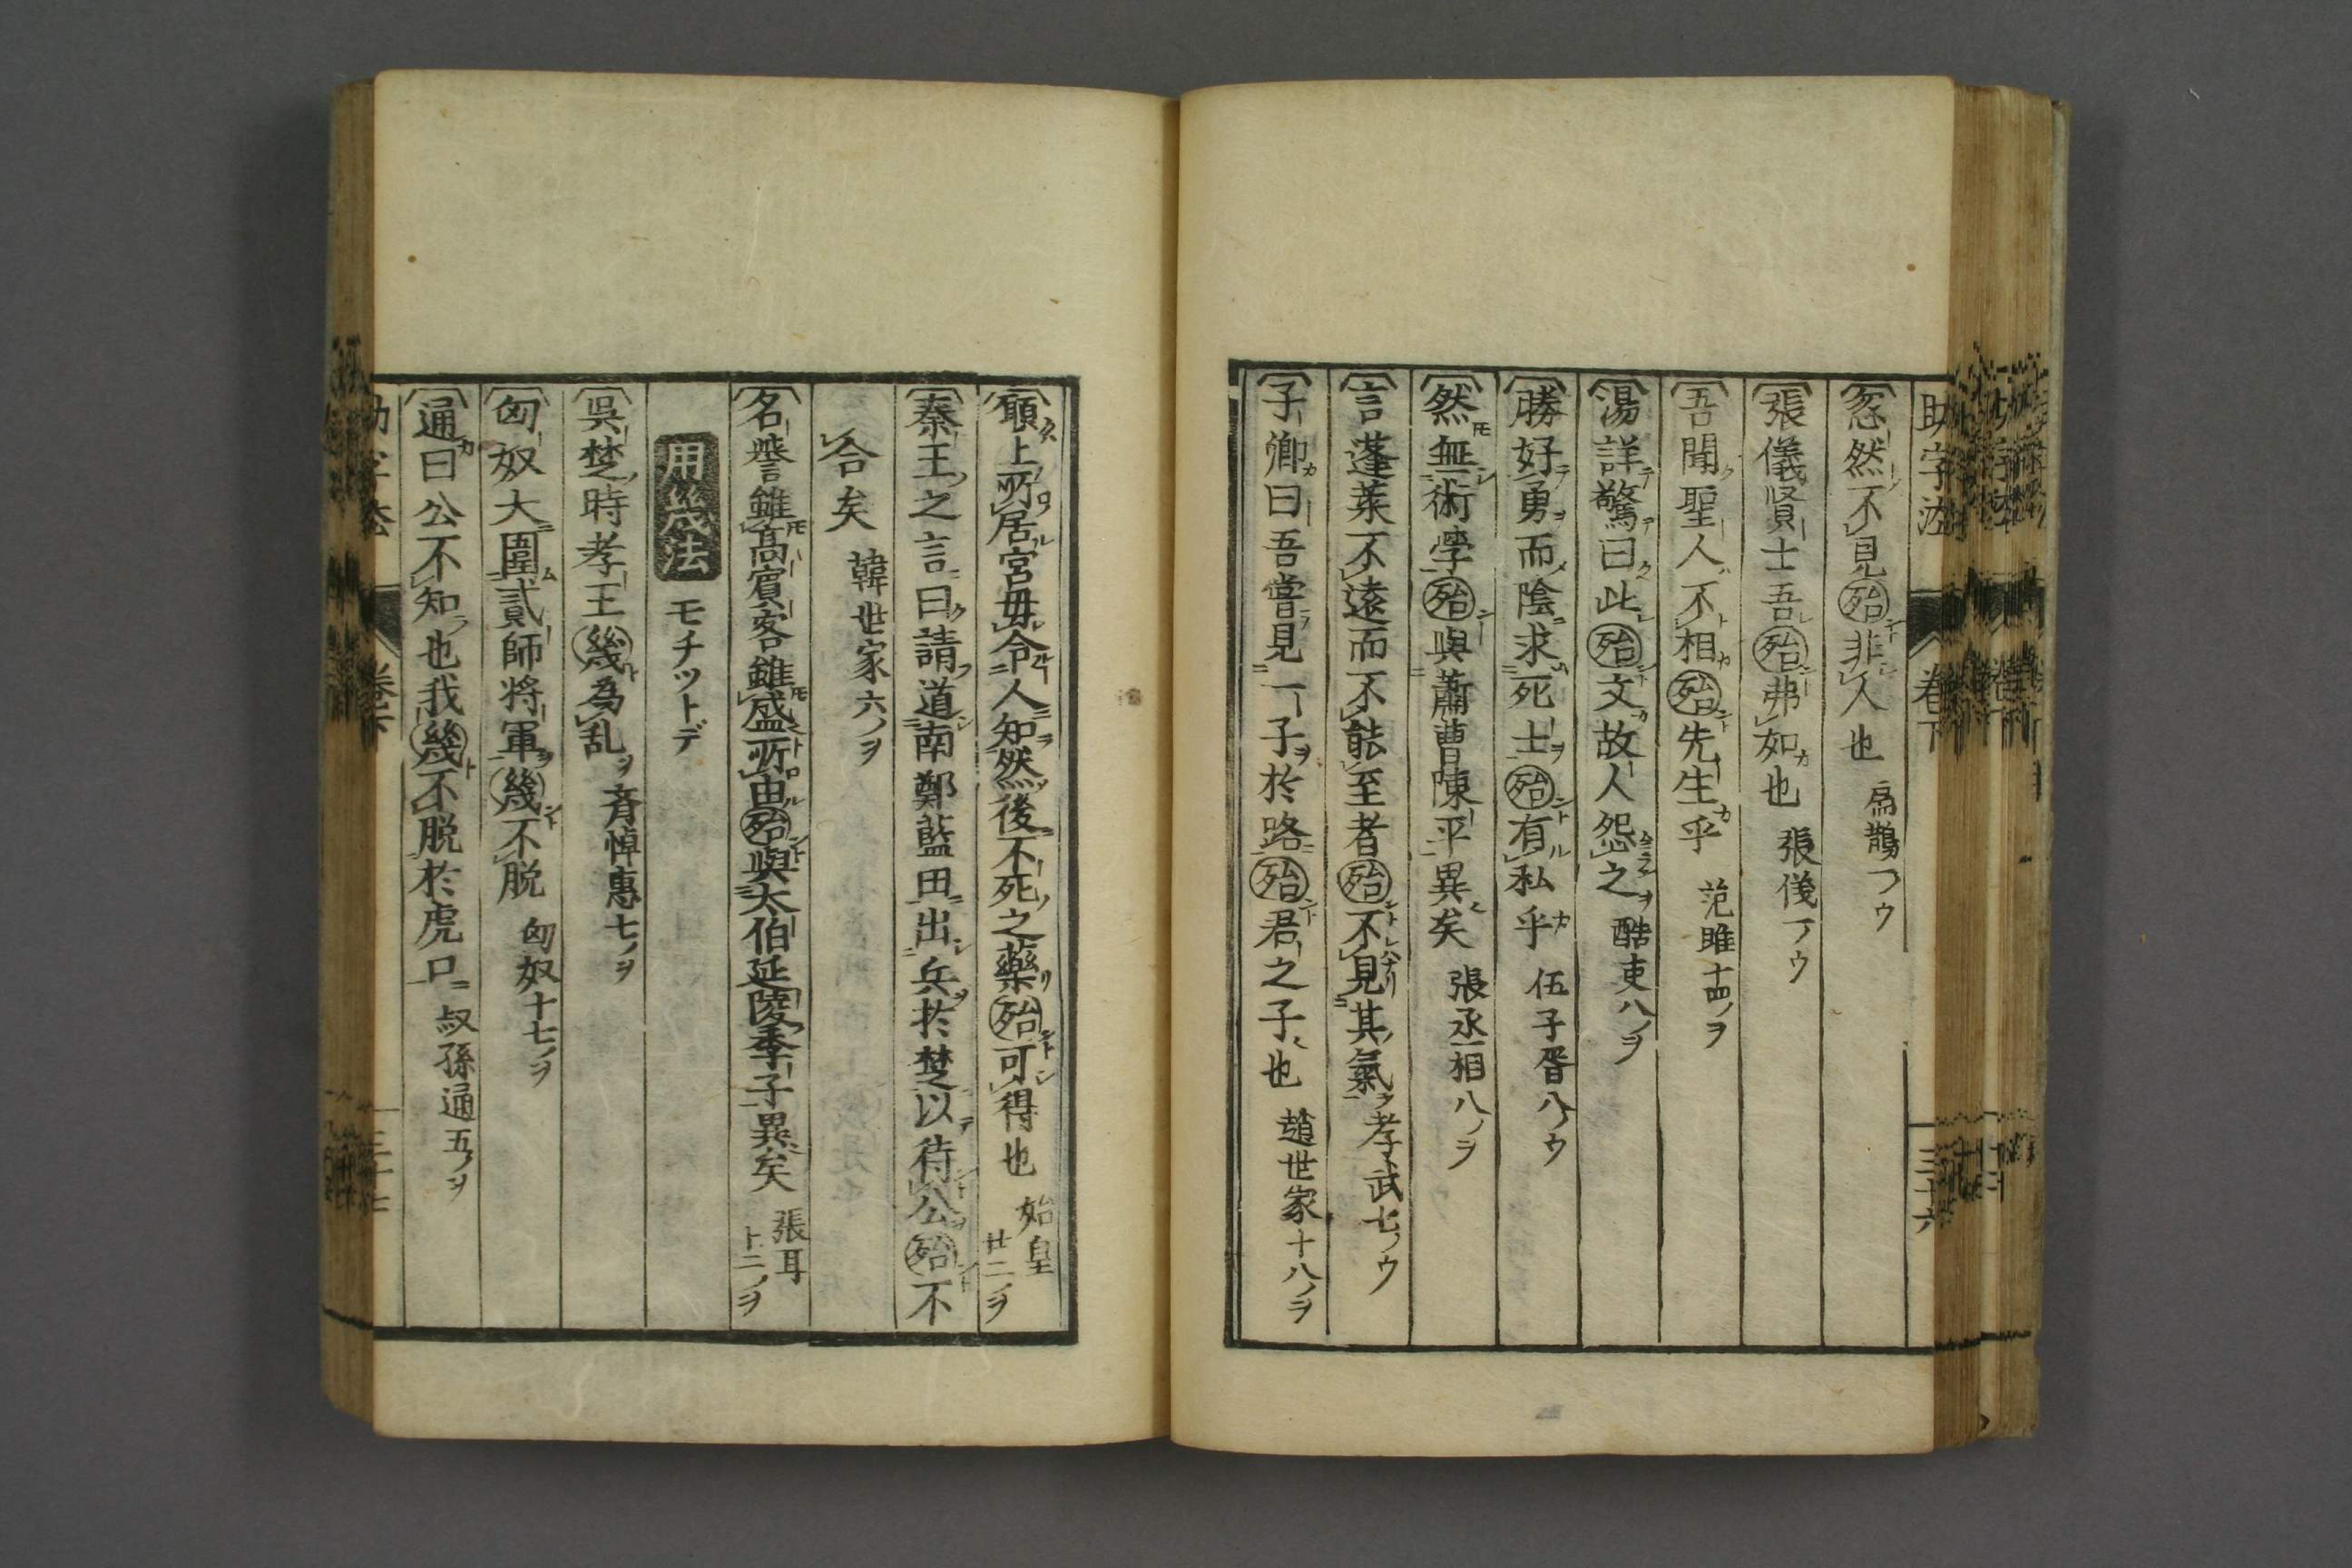 助字法 卷下 三十六
忽然不見殆非人也 扁鵲一ノウ
張儀賢士吾殆弗如也 張儀一ノウ
吾聞聖人不相殆先生乎 范雎十四ノヲ
湯詳驚曰此殆文故人怨之 酷吏八ノヲ
勝好勇而陰求死士殆有私乎 伍子胥八ノウ
然無術學殆與蕭曹陳平異矣 張丞相八ノヲ
言蓬萊不遠而不能至者殆不見其氣 孝武七ノウ
子卿曰吾嘗見一子於路殆君之子也 趙世家十八ノヲ
願上所居宮毋令人知然後不死之藥殆可得也 始皇廿二ノヲ
秦王之言曰請道南鄭藍田出兵於楚以待公殆不
合矣 韓世家六ノヲ
名譽雖高賓客雖盛所由殆與太伯延陵季子異矣 張耳十二ノヲ
用幾法 モチットデ
吳楚時孝王幾為乱 斉悼惠七ノヲ
匈奴大圍貳師將軍幾不脱 匈奴十七ノヲ
通曰公不知也我幾不脱於虎口 叔孫通五ノヲ